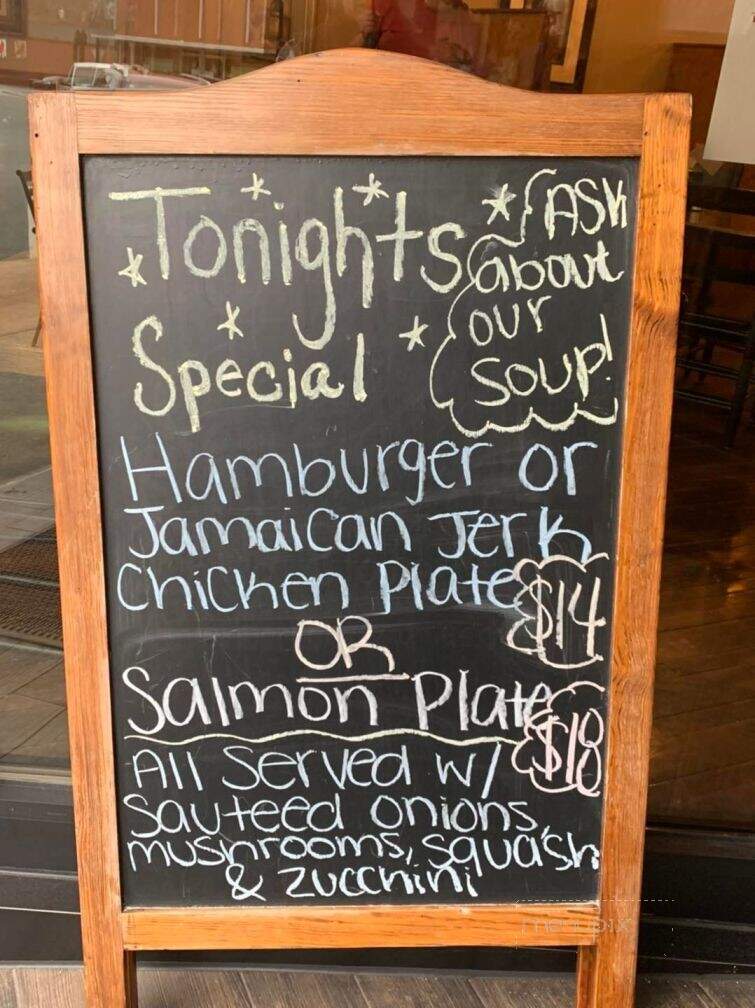 Tonights
Special
ASK
about
our
soup!
Hamburger or
Jamaican Jerk
Chicken Plate $14
OR
Salmon Plate $18
All Served w/
Sauteed onions,
mushrooms, squash
& zucchini
menupix